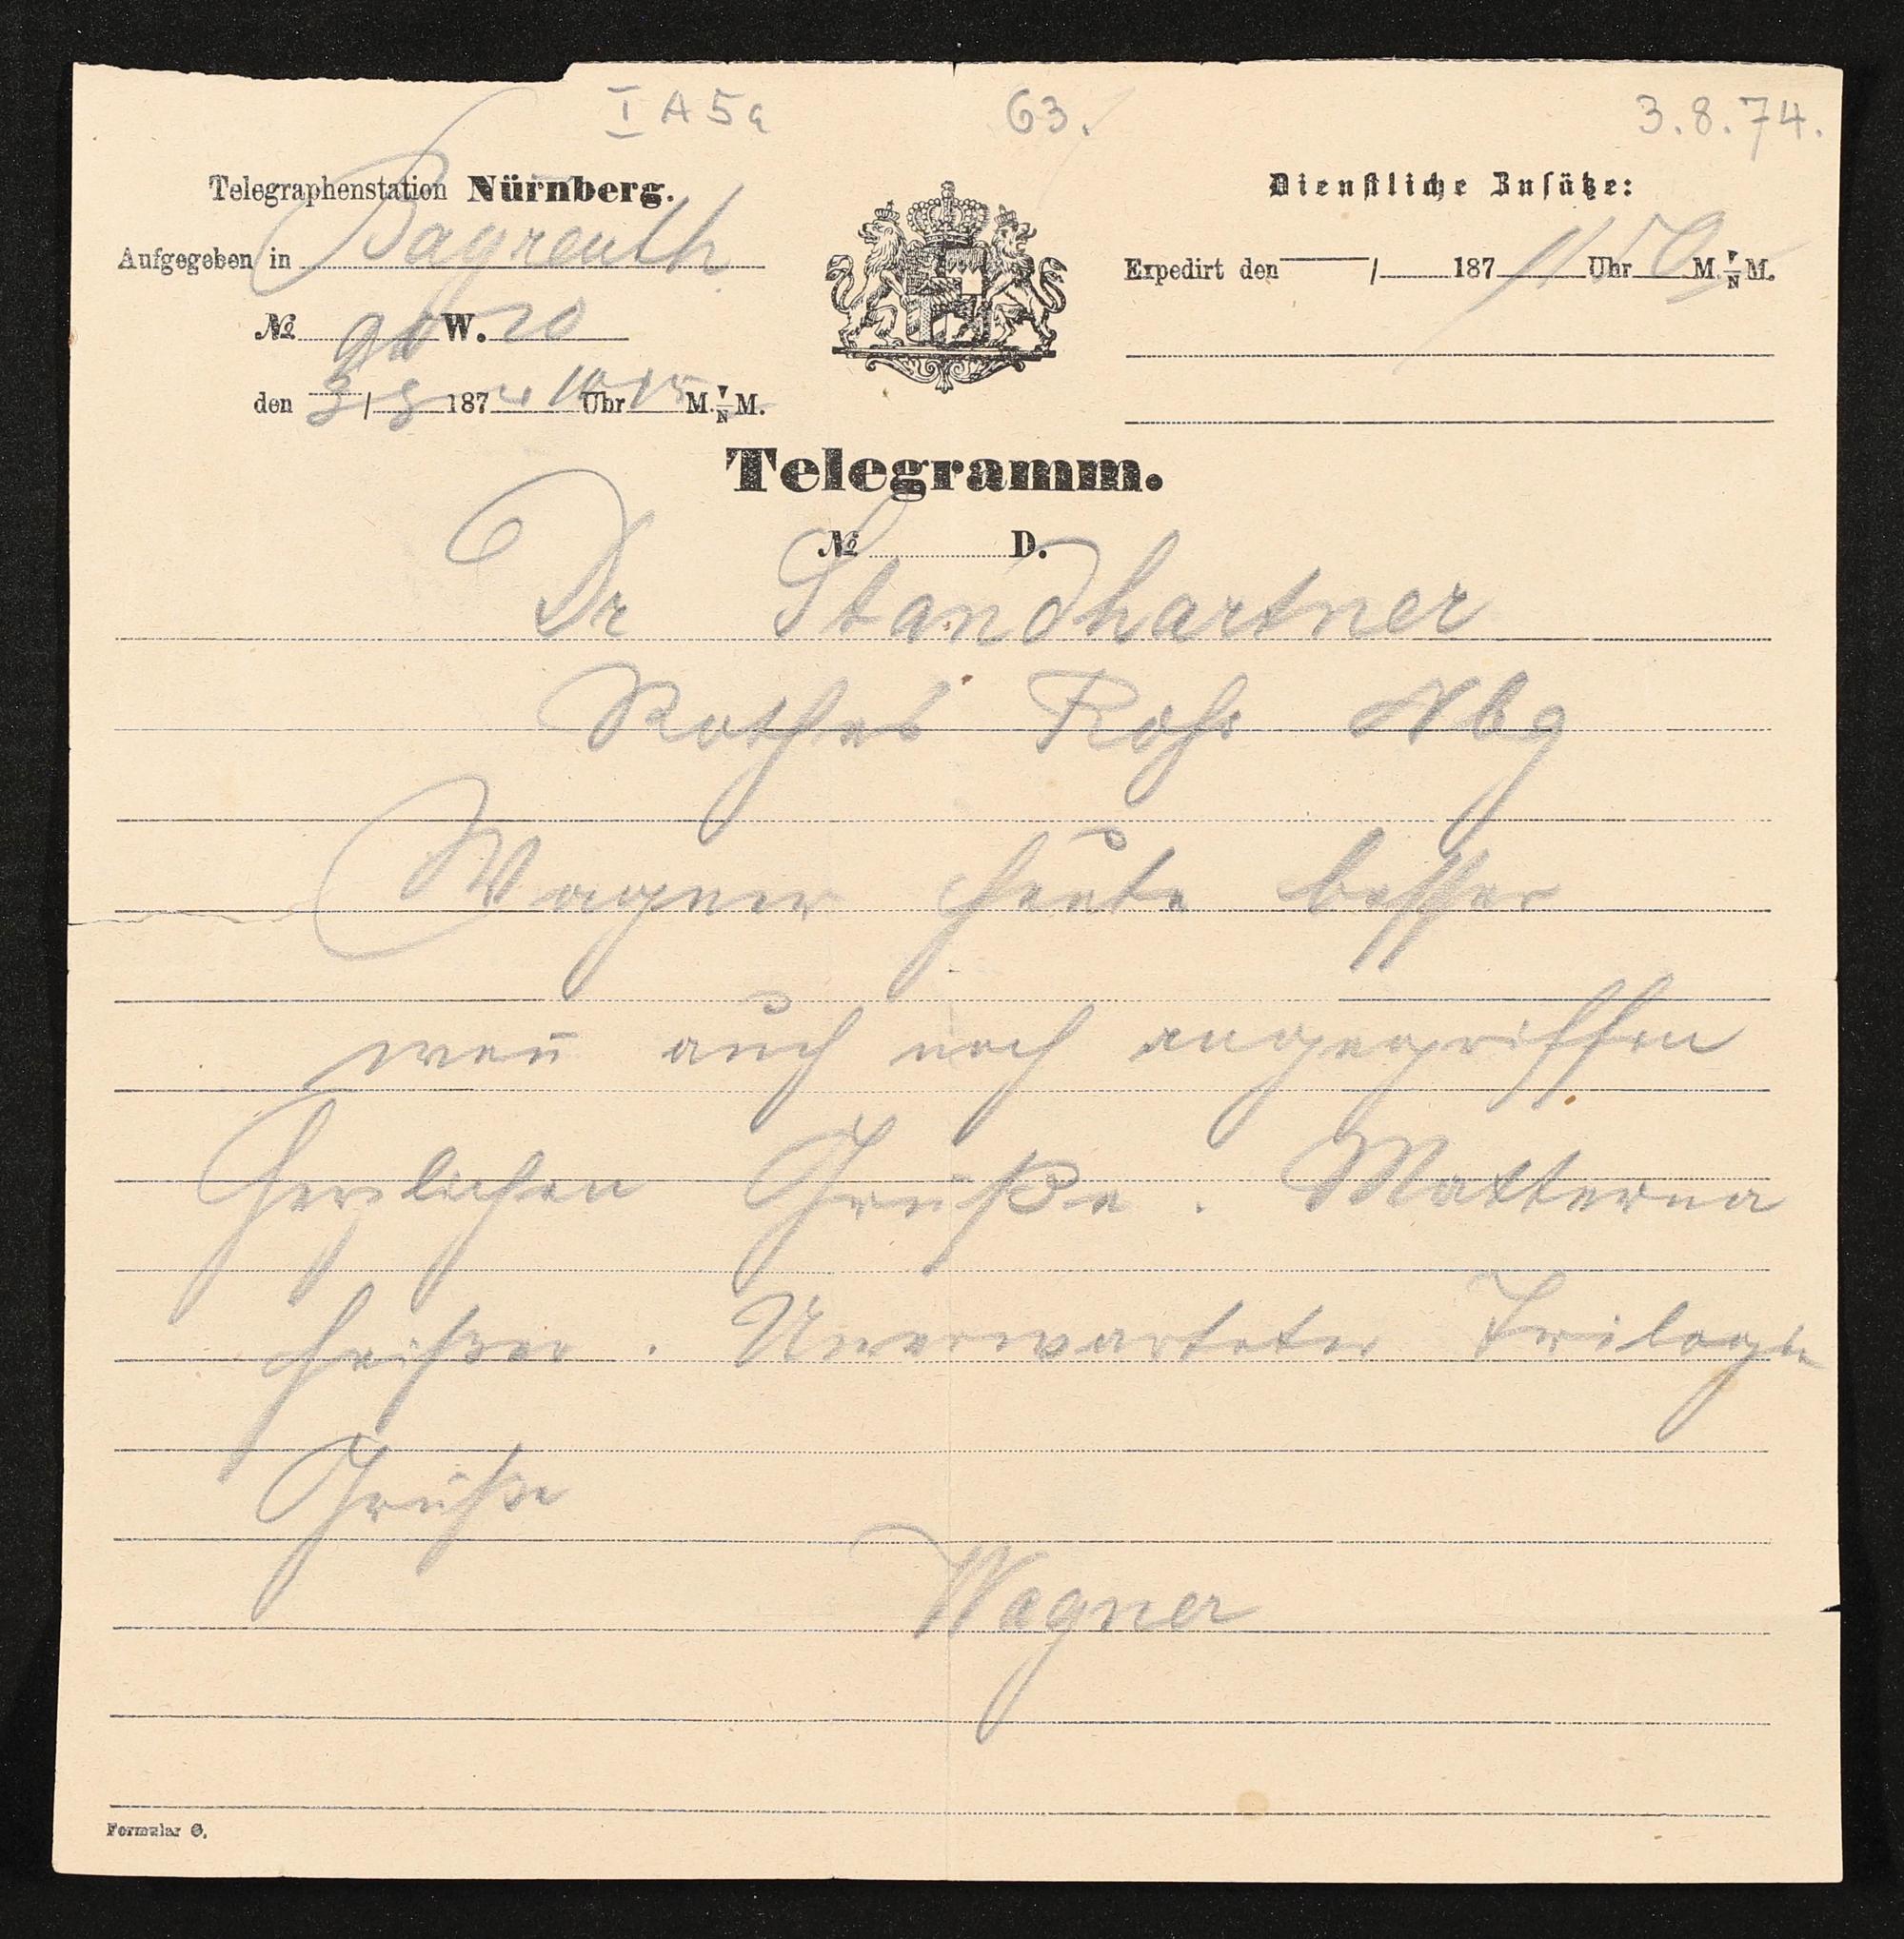 I A 5a
63.
3.8.74.
Telegraphenstation Nürnberg.
Dienstliche Zusätze:
Aufgegeben in Bayreuth
Expedirt den / 187 11 Uhr 50 M. V/N M.
No W. 20
den 3/8 1874 10 Uhr 15 M. V/N M.
Telegramm.
No D.
Dr Standhartner
Rothes Roß Nbg
Wagner heute besser
wen̅ auch noch angegriffen
Herzlichen Grüße. Matterna
heißer. Unerwarteter Trilogie
Grüße
Wagner
Formular G.